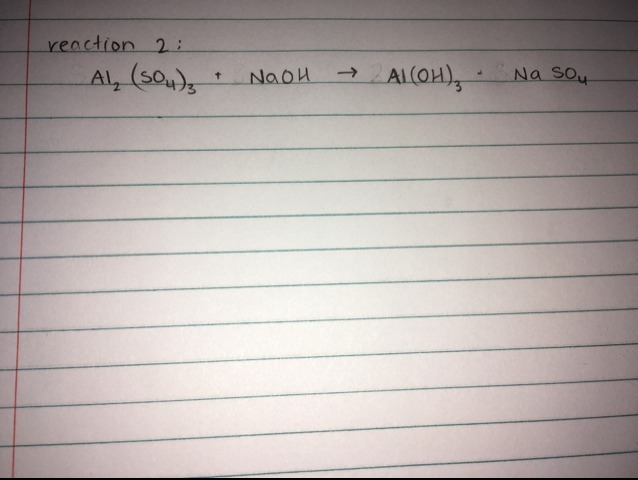 reaction 2:
Al₂ (SO₄)₃ + NaOH → Al(OH)₃ · Na SO₄